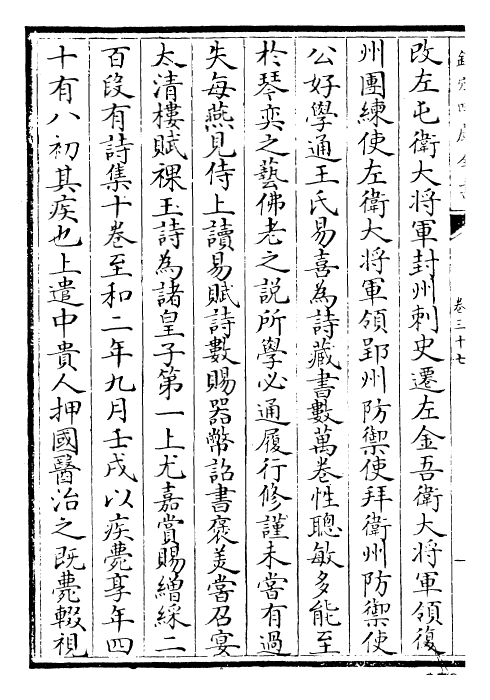 欽定四庫全書
卷三十七
一
改左屯衛大將軍封州刺史遷左金吾衛大將軍領復
州團練使左衛大將軍領郢州防禦使拜衛州防禦使
公好學通王氏易喜為詩藏書數萬卷性聰敏多能至
於琴奕之藝佛老之說所學必通履行修謹未嘗有過
失每燕見侍上讀易賦詩數賜器幣詔書褒美嘗召宴
太清樓賦祼玉詩為諸皇子第一上尤嘉賞賜繒綵二
百段有詩集十卷至和二年九月壬戌以疾薨享年四
十有八初其疾也上遣中貴人押國醫治之既薨輟視